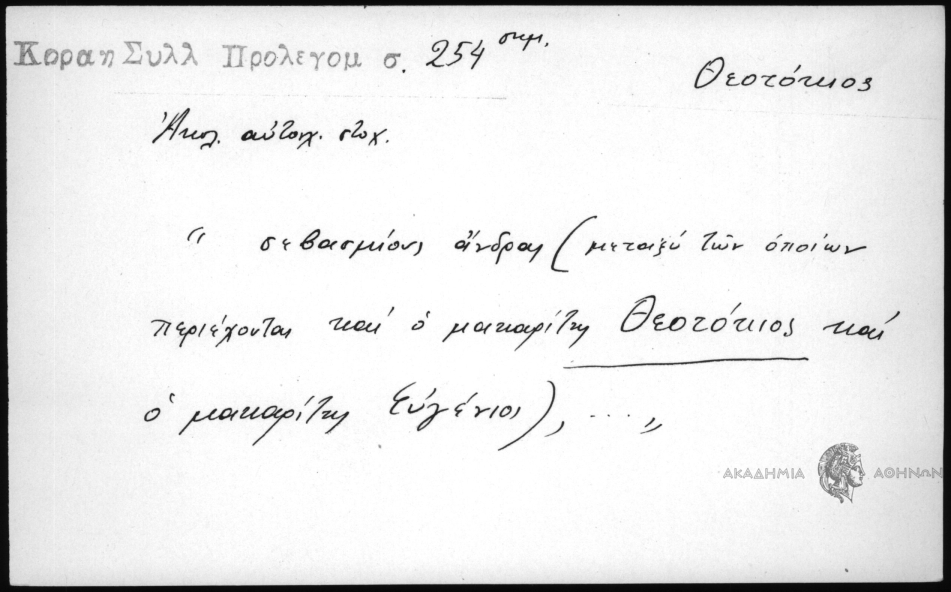 Κοραη Συλλ Προλεγομ σ. 254 σημ.
Θεοτόκιος
Ἀκολ. αὐτοσχ. στοχ.
“ σεβασμίους ἄνδρας (μεταξὺ τῶν ὁποίων
περιέχονται καὶ ὁ μακαρίτης Θεοτόκιος καὶ
ὁ μακαρίτης Εὐγένιος), ....„
ΑΚΑΔΗΜΙΑ ΑΘΗΝΩΝ